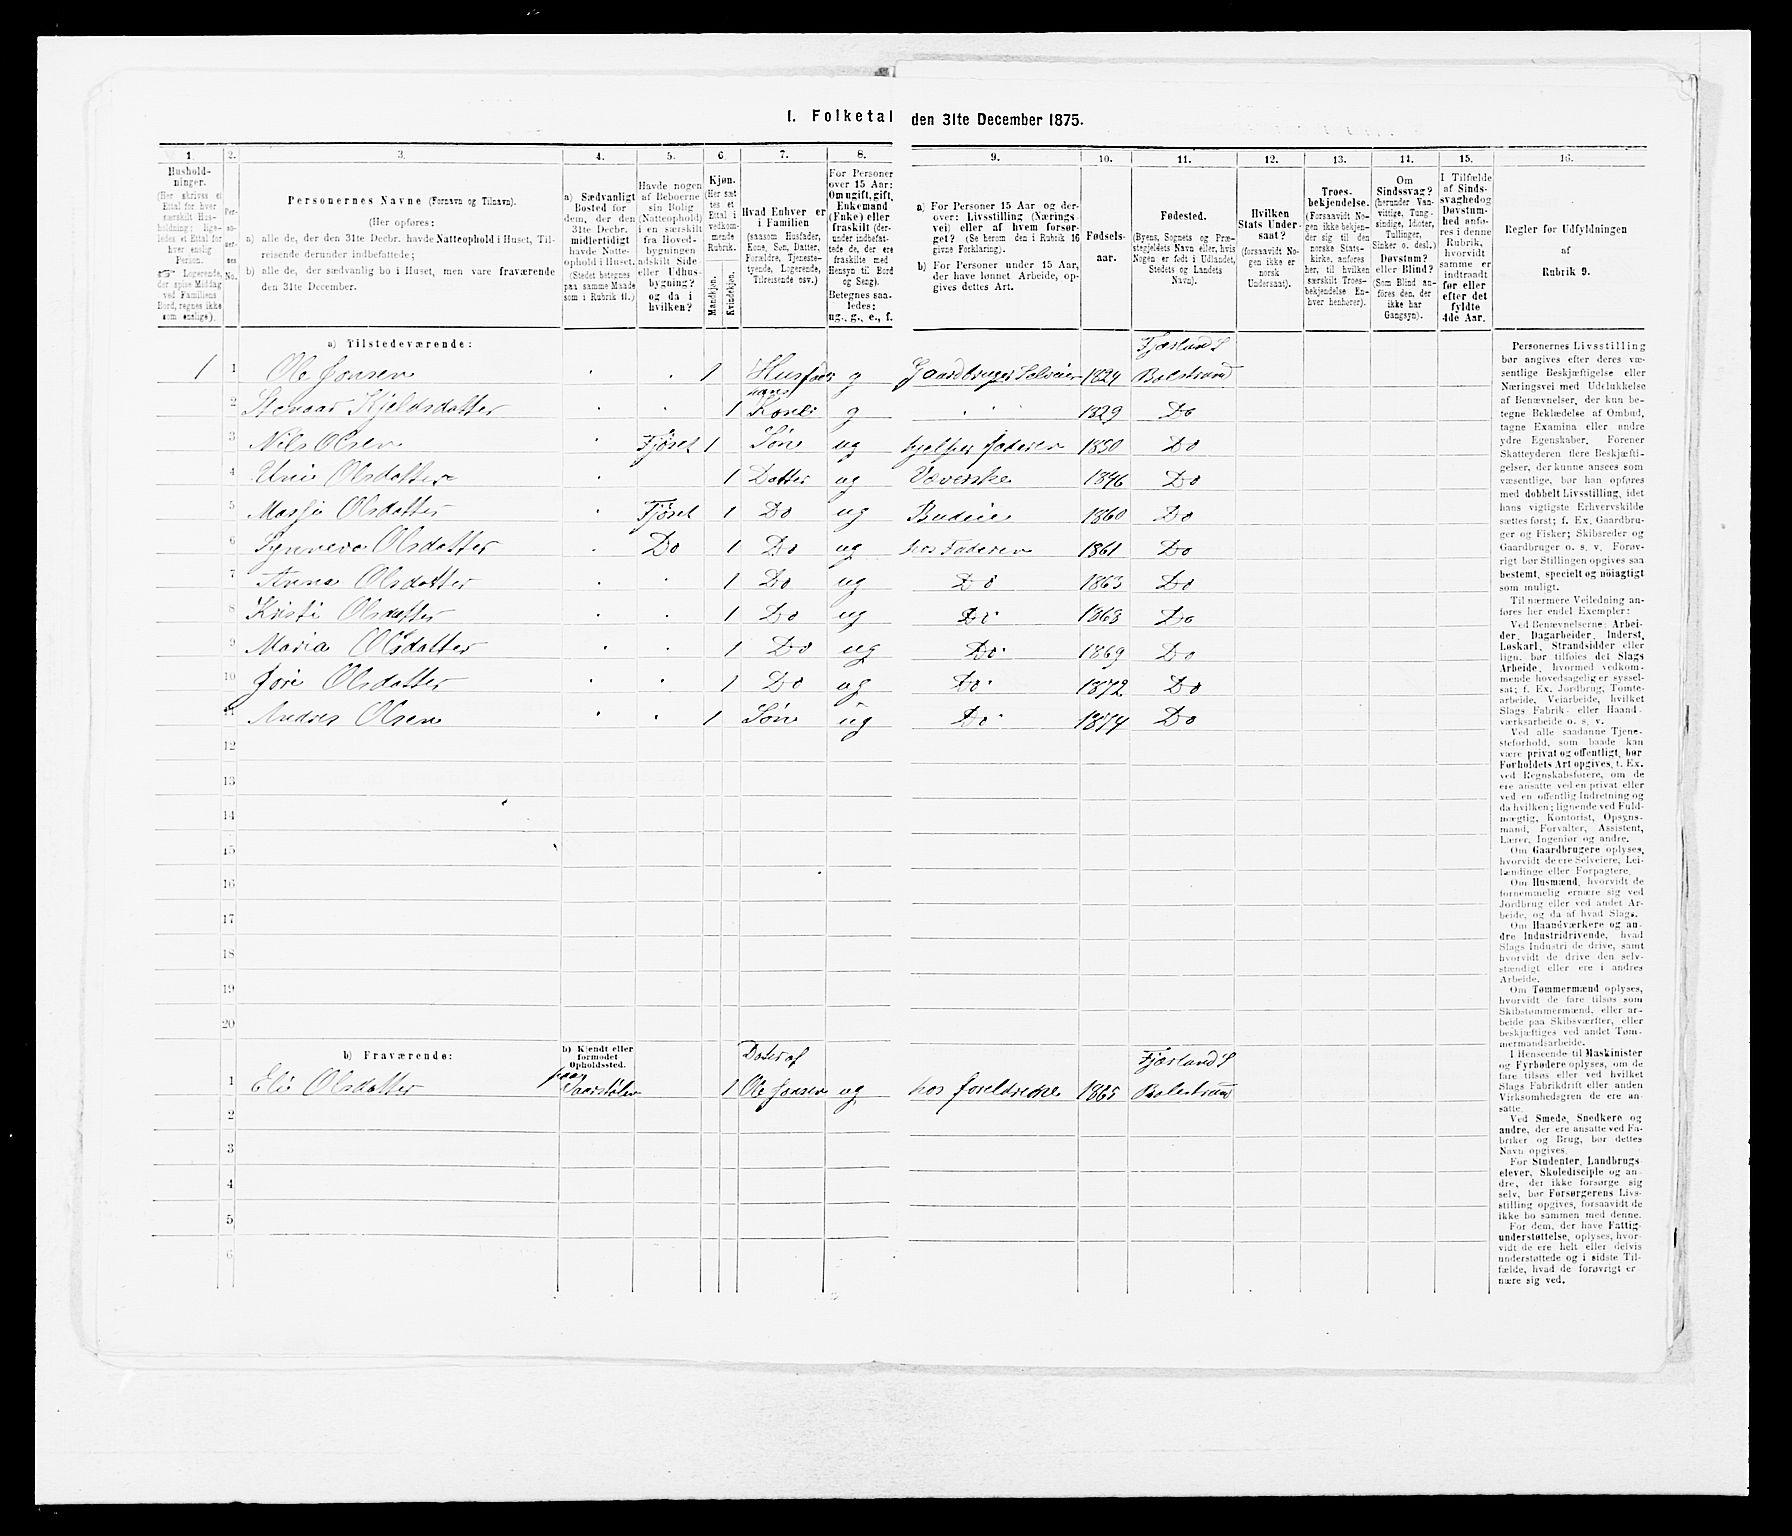 I. Folketal den 31te December 1875.
1. 2. 3. 4. 5. 6. 7. 8. 9. 10. 11. 12. 13. 14. 15. 16.
Hushold-
ninger.
(Her skrives et
Ettal for hver
særskilt Hus-
holdning; lige-
ledes et Ettal for
hver enslig
Person.
☞ Logerende,
der spise Middag
ved Familiens
Bord, regnes ikke
som enslige).
Per-
so-
ner-
nes
No.
Personernes Navne (Fornavn og Tilnavn).
(Her opføres:
a) alle de, der den 31te Decbr. havde Natteophold i Huset, Til-
reisende derunder indbefattede;
b) alle de, der sædvanlig bo i Huset, men vare fraværende
den 31te December.
a) Sædvanligt
Bosted for
dem, der den
31te Decbr.
midlertidigt
havde Natte-
ophold i Huset.
(Stedet betegnes
paa samme Maade
som i Rubrik 11.)
Havde nogen
af Beboerne
sin Bolig
(Natteophold)
i en særskilt
fra Hoved-
bygningen
adskilt Side
eller Udhus-
bygning?
og da i
hvilken?
Kjøn.
(Her sæt
tes et
Ettal i
vedkom-
mende
Rubrik.
Mandkjøn.
Kvindekjøn.
Hvad Enhver er
i Familien
(saasom Husfader,
Kone, Søn, Datter,
Forældre, Tjeneste-
tyende, Logerende,
Tilreisende osv.)
For Personer
over 15 Aar:
Om ugift, gift,
Enkemand
(Enke) eller
fraskilt (der-
under indbefat-
tede de, der ere
fraskilte med
Hensyn til Bord
og Seng).
Betegnes saa-
ledes:
ug., g., e., f.
a) For Personer 15 Aar og der-
over: Livsstilling (Nærings-
vei) eller af hvem forsør-
get? (Se herom den i Rubrik 16
givne Forklaring).
b) For Personer under 15 Aar,
der have lønnet Arbeide, op-
gives dettes Art.
Fødsels-
aar.
Fødested.
(Byens, Sognets og Præ-
stegjeldets Navn eller, hvis
Nogen er født i Udlandet,
Stedets og Landets
Navn).
Hvilken
Stats Under-
saat?
(forsaavidt No-
gen ikke er
norsk
Undersaat).
Troes-
bekjendelse.
(Forsaavidt No-
gen ikke bekjen-
der sig til den
norske Stats-
kirke, anføres
her, til hvilken
særskilt Troes-
bekjendelse En-
hver henhører).
Om
Sindssvag?
(herunder Van-
vittige, Tung-
sindige, Idioter,
Tullinger,
Sinker o. desl.)
Døvstum?
eller Blind?
(Som Blind an-
føres den, der
ikke har
Gangsyn).
I Tilfælde
af Sinds-
svaghed og
Døvstum-
hed anfø-
res i denne
Rubrik,
hvorvidt
samme er
indtraadt
før eller
efter det
fyldte
4de Aar.
Regler før Udfyldningen
af
Rubrik 9.
a) Tilstedeværende:
Fjærland S
1 1 Ole Jonsen 1 Husfader g Gaardbruger Selveier 1824 Balestrand
2 Kjeldsdatter 1 hans Kone g 1829 Do
3 Nils Olsen Fjöset 1 Søn ug hjelper faderen 1850 Do
4 Olsdatter 1 Datter ug Væverske 1846 Do
5 Olsdatter Fjöset 1 Do ug Budeie 1860 Do
6 Synneva Olsdatter Do 1 Do ug hos Faderen 1861 Do
7 Anna Olsdatter 1 Do ug Do 1863 Do
8 Kristi Olsdatter 1 Do ug Do 1868 Do
9 Maria Olsdatter 1 Do ug Do 1869 Do
10 Olsdatter 1 Do ug Do 1872 Do
11 Andres Olsen 1 Søn ug Do 1874 Do
12
13
14
15
16
17
18
19
20
b) Fraværende:
b) Kjendt eller
formodet
Opholdssted.
Dater af
Fjærland S
paa
1 Eli Olsdatter 1 Ole Jonsen ug hos foreldrene 1865 Balestrand
2
3
4
5
6
Personernes Livsstilling
bør angives efter deres væ-
sentlige Beskjæftigelse eller
Næringsvei med Udelukkelse
af Benævnelser, der kun be-
tegne Beklædelse af Ombud,
tagne Examina eller andre
ydre Egenskaber. Forener
Skatteyderen flere Beskjæfti-
gelser, der kunne ansees som
væsentlige, bør han opføres
med dobbelt Livsstilling, idet
hans vigtigste Erhvervskilde
sættes først; f. Ex. Gaardbru-
ger og Fisker; Skibsreder og
Gaardbruger o. s. v. Forøv-
rigt bør Stillingen opgives saa
bestemt, specielt og nöiagtigt
som muligt.
Til nærmere Veiledning an-
føres her endel Exempler:
Ved Benævnelserne: Arbei-
der, Dagarbeider, Inderst,
Løskarl, Strandsidder eller
lign. bør tilføies det Slags
Arbeide, hvormed vedkom-
mende hovedsagelig er syssel-
sat; f. Ex. Jordbrug, Tomte-
arbeide, Veiarbeide, hvilket
Slags Fabrik- eller Haand-
værksarbeide o. s. v.
Ved alle saadanne Tjene-
steforhold, som baade kan
være privat og offentligt, bør
Forholdets Art opgives, t. Ex.
ved Regnskabsførere, om de
ere ansatte ved en privat eller
ved en offentlig Indretning og
da hvilken; lignende ved Fuld-
mægtig, Kontorist, Opsyns-
mand, Forvalter, Assistent,
Lærer, Ingeniør og andre.
Om Gaardbrugere oplyses,
hvorvidt de ere Selveiere, Lei-
lændinge eller Forpagtere.
Om Husmænd, hvorvidt de
fornemmelig ernære sig ved
Jordbrug eller ved andet Ar-
beide, og da af hvad Slags.
Om Haandværkere og an-
dre Industridrivende, hvad
Slags Industri de drive, samt
hvorvidt de drive den selv-
stændigt eller ere i andres
Arbeide.
Om Tømmermænd oplyses,
hvorvidt de fare tilsøs som
Skibstømmermænd, eller ar-
beide paa Skibsværfter, eller
beskjæftiges ved andet Tøm-
mermandsarbeide.
I Henseende til Maskinister
og Fyrbødere oplyses, om de
fare tilsøs eller ved hvilket
Slags Fabrikdrift eller anden
Virksomhedsgren de ere an-
satte.
Ved Smede, Snedkere og
andre, der ere ansatte ved Fa-
briker og Brug, bør dettes
Navn opgives.
For Studenter, Landbrugs-
elever, Skoledisciple og an-
dre, der ikke forsørge sig
selv, bør Forsørgerens Livs-
stilling opgives, forsaavidt de
ikke bo sammen med denne.
For dem, der have Fattig-
understøttelse, oplyses, hvor-
vidt de ere helt eller delvis
understøttede og i sidste Til-
fælde, hvad de forøvrigt er
nære sig ved.